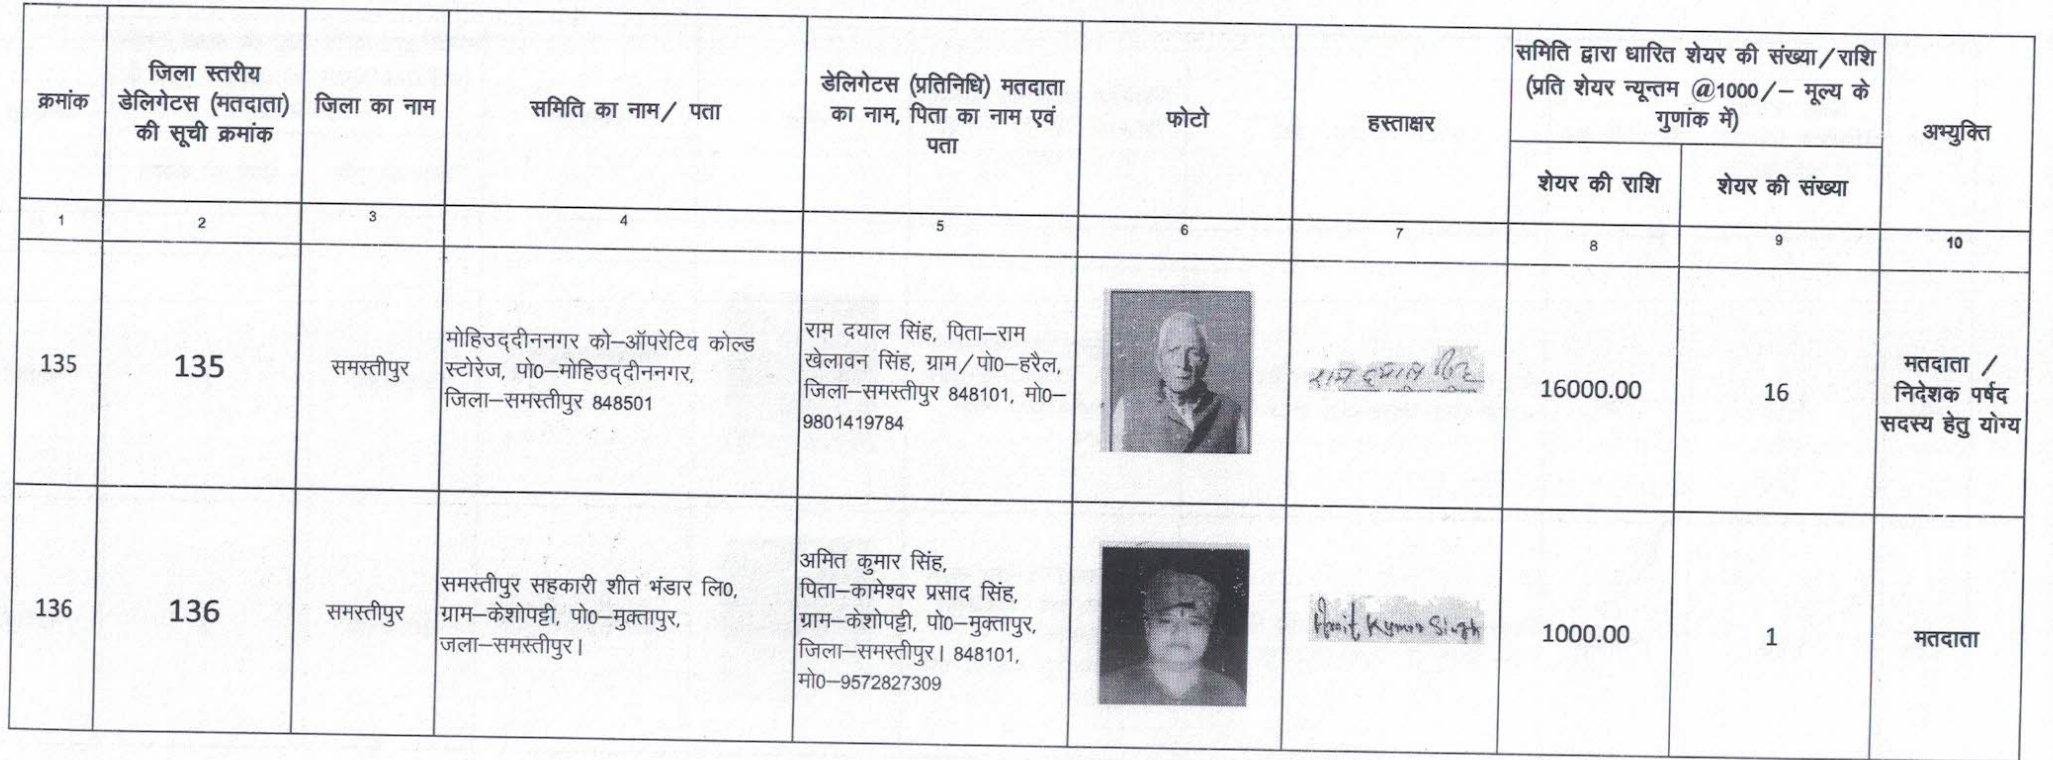 क्रमांक
जिला स्तरीय
डेलिगेटस (मतदाता)
की सूची क्रमांक
जिला का नाम
समिति का नाम/ पता
डेलिगेटस (प्रतिनिधि) मतदाता
का नाम, पिता का नाम एवं
पता
फोटो
हस्ताक्षर
समिति द्वारा धारित शेयर की संख्या/राशि
(प्रति शेयर न्यून्तम @1000/– मूल्य के
गुणांक में)
शेयर की राशि
शेयर की संख्या
अभ्युक्ति
1 2 3 4 5 6 7 8 9 10
135
135
समस्तीपुर
मोहिउद्दीननगर को–ऑपरेटिव कोल्ड
स्टोरेज, पो0–मोहिउद्दीननगर,
जिला–समस्तीपुर 848501
राम दयाल सिंह, पिता–राम
खेलावन सिंह, ग्राम/पो0–हरैल,
जिला–समस्तीपुर 848101, मो0–
9801419784
राम दयाल सिंह
16000.00
16
मतदाता /
निदेशक पर्षद
सदस्य हेतु योग्य
136
136
समस्तीपुर
समस्तीपुर सहकारी शीत भंडार लि0,
ग्राम–केशोपट्टी, पो0–मुक्तापुर,
जला–समस्तीपुर।
अमित कुमार सिंह,
पिता–कामेश्वर प्रसाद सिंह,
ग्राम–केशोपट्टी, पो0–मुक्तापुर,
जिला–समस्तीपुर। 848101,
मो0–9572827309
Amit Kumar Singh
1000.00
1
मतदाता